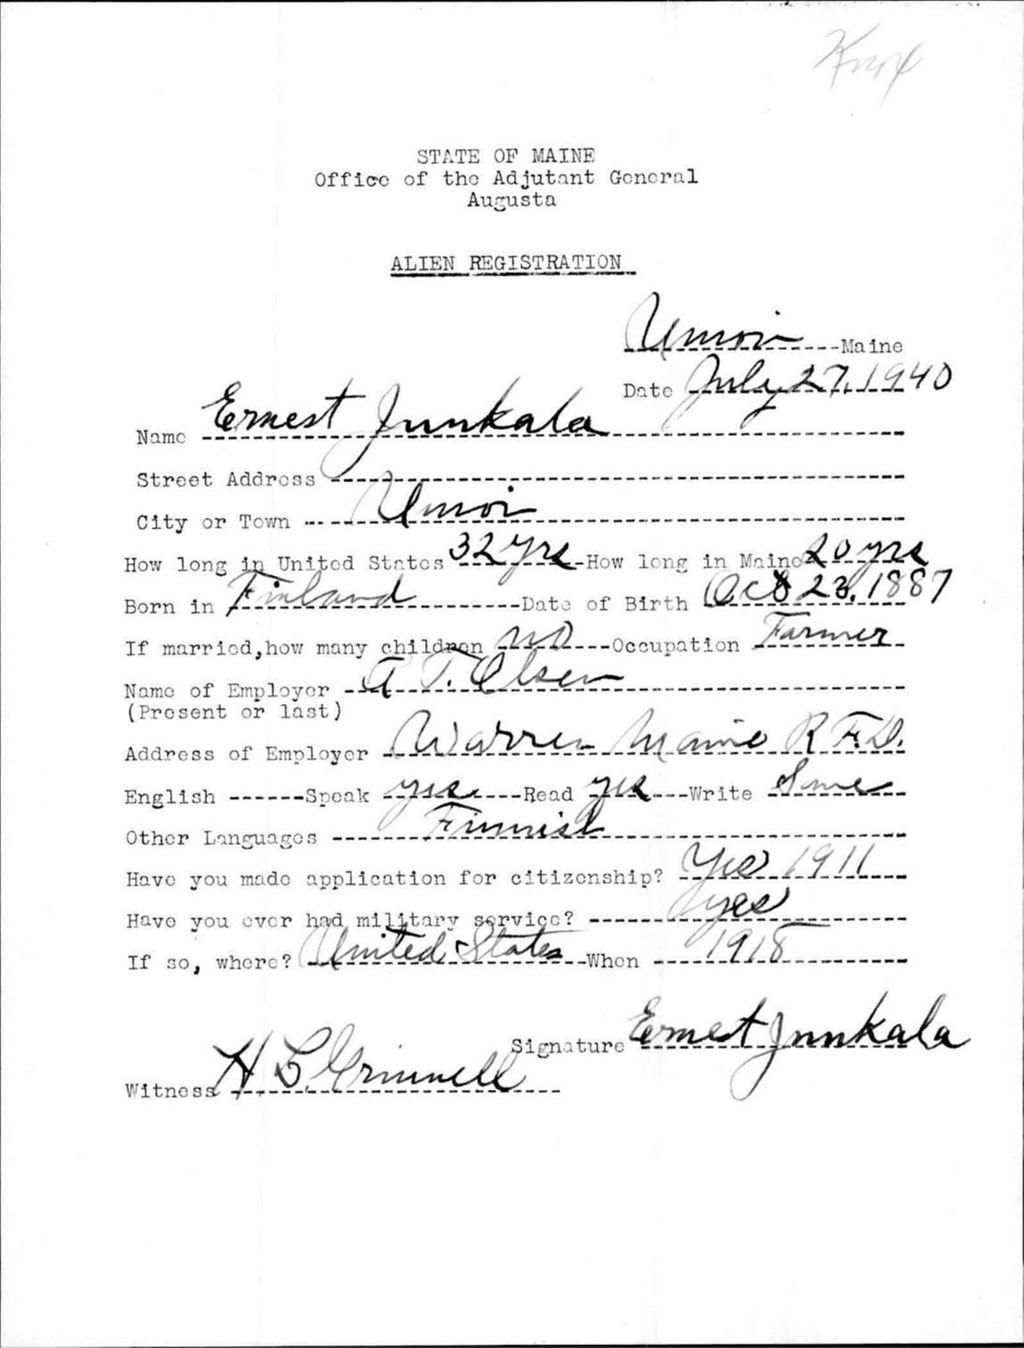 Knox
STATE OF MAINE
Office of the Adjutant General
Augusta
ALIEN REGISTRATION
Union Maine
Date July 27, 1940
Name Ernest Junkala
Street Address
City or Town Union
How long in United States 32 yrs How long in Maine 20 yrs
Born in Finland Date of Birth Oct 23, 1887
If married, how many children no Occupation Farmer
Name of Employer A T. Olsen
(Present or last)
Address of Employer Warren Maine R.F.D.
English Speak yes Read yes Write Some
Other Languages Finnish
Have you made application for citizenship? Yes 1911
Have you ever had military service? yes
If so, where? United States When 1918
Signature Ernest Junkala
Witness H L. Grinnell